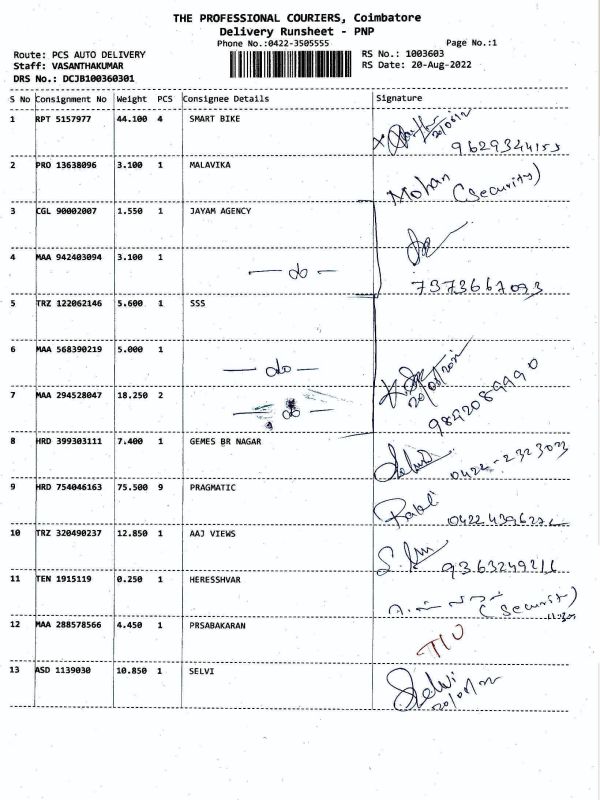 THE PROFESSIONAL COURIERS, Coimbatore
Delivery Runsheet - PNP
Phone No.:0422-3505555
Page No.:1
Route: PCS AUTO DELIVERY
RS No.: 1003603
Staff: VASANTHAKUMAR
RS Date: 20-Aug-2022
DRS No.: DCJB100360301
S No Consignment No Weight PCS Consignee Details Signature
1 RPT 5157977 44.100 4 SMART BIKE
9629324153
2 PRO 13638096 3.100 1 MALAVIKA Mohan (Security)
3 CGL 90002007 1.550 1 JAYAM AGENCY
4 MAA 942403094 3.100 1 — do —
7373667093
5 TRZ 122062146 5.600 1 SSS
6 MAA 568390219 5.000 1 — do —
7 MAA 294528047 18.250 2 — do — 20/08/2022
9892089990
8 HRD 399303111 7.400 1 GEMES BR NAGAR Selvi 0422-2323023
9 HRD 754046163 75.500 9 PRAGMATIC
10 TRZ 320490237 12.850 1 AAJ VIEWS 9363249216
11 TEN 1915119 0.250 1 HERESSHVAR (Security)
12 MAA 288578566 4.450 1 PRSABAKARAN
13 ASD 1139030 10.850 1 SELVI Selvi
20/08/22